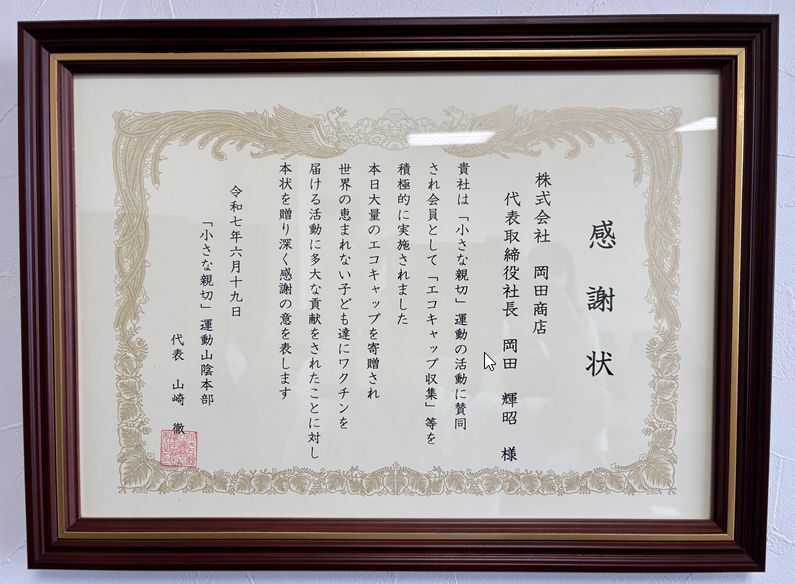 感謝状
株式会社　岡田商店
代表取締役社長　岡田　輝昭　様
貴社は「小さな親切」運動の活動に賛同
され会員として「エコキャップ収集」等を
積極的に実施されました
本日大量のエコキャップを寄贈され
世界の恵まれない子ども達にワクチンを
届ける活動に多大な貢献をされたことに対し
本状を贈り深く感謝の意を表します
令和七年六月十九日
「小さな親切」運動山陰本部
代表　山崎　徹